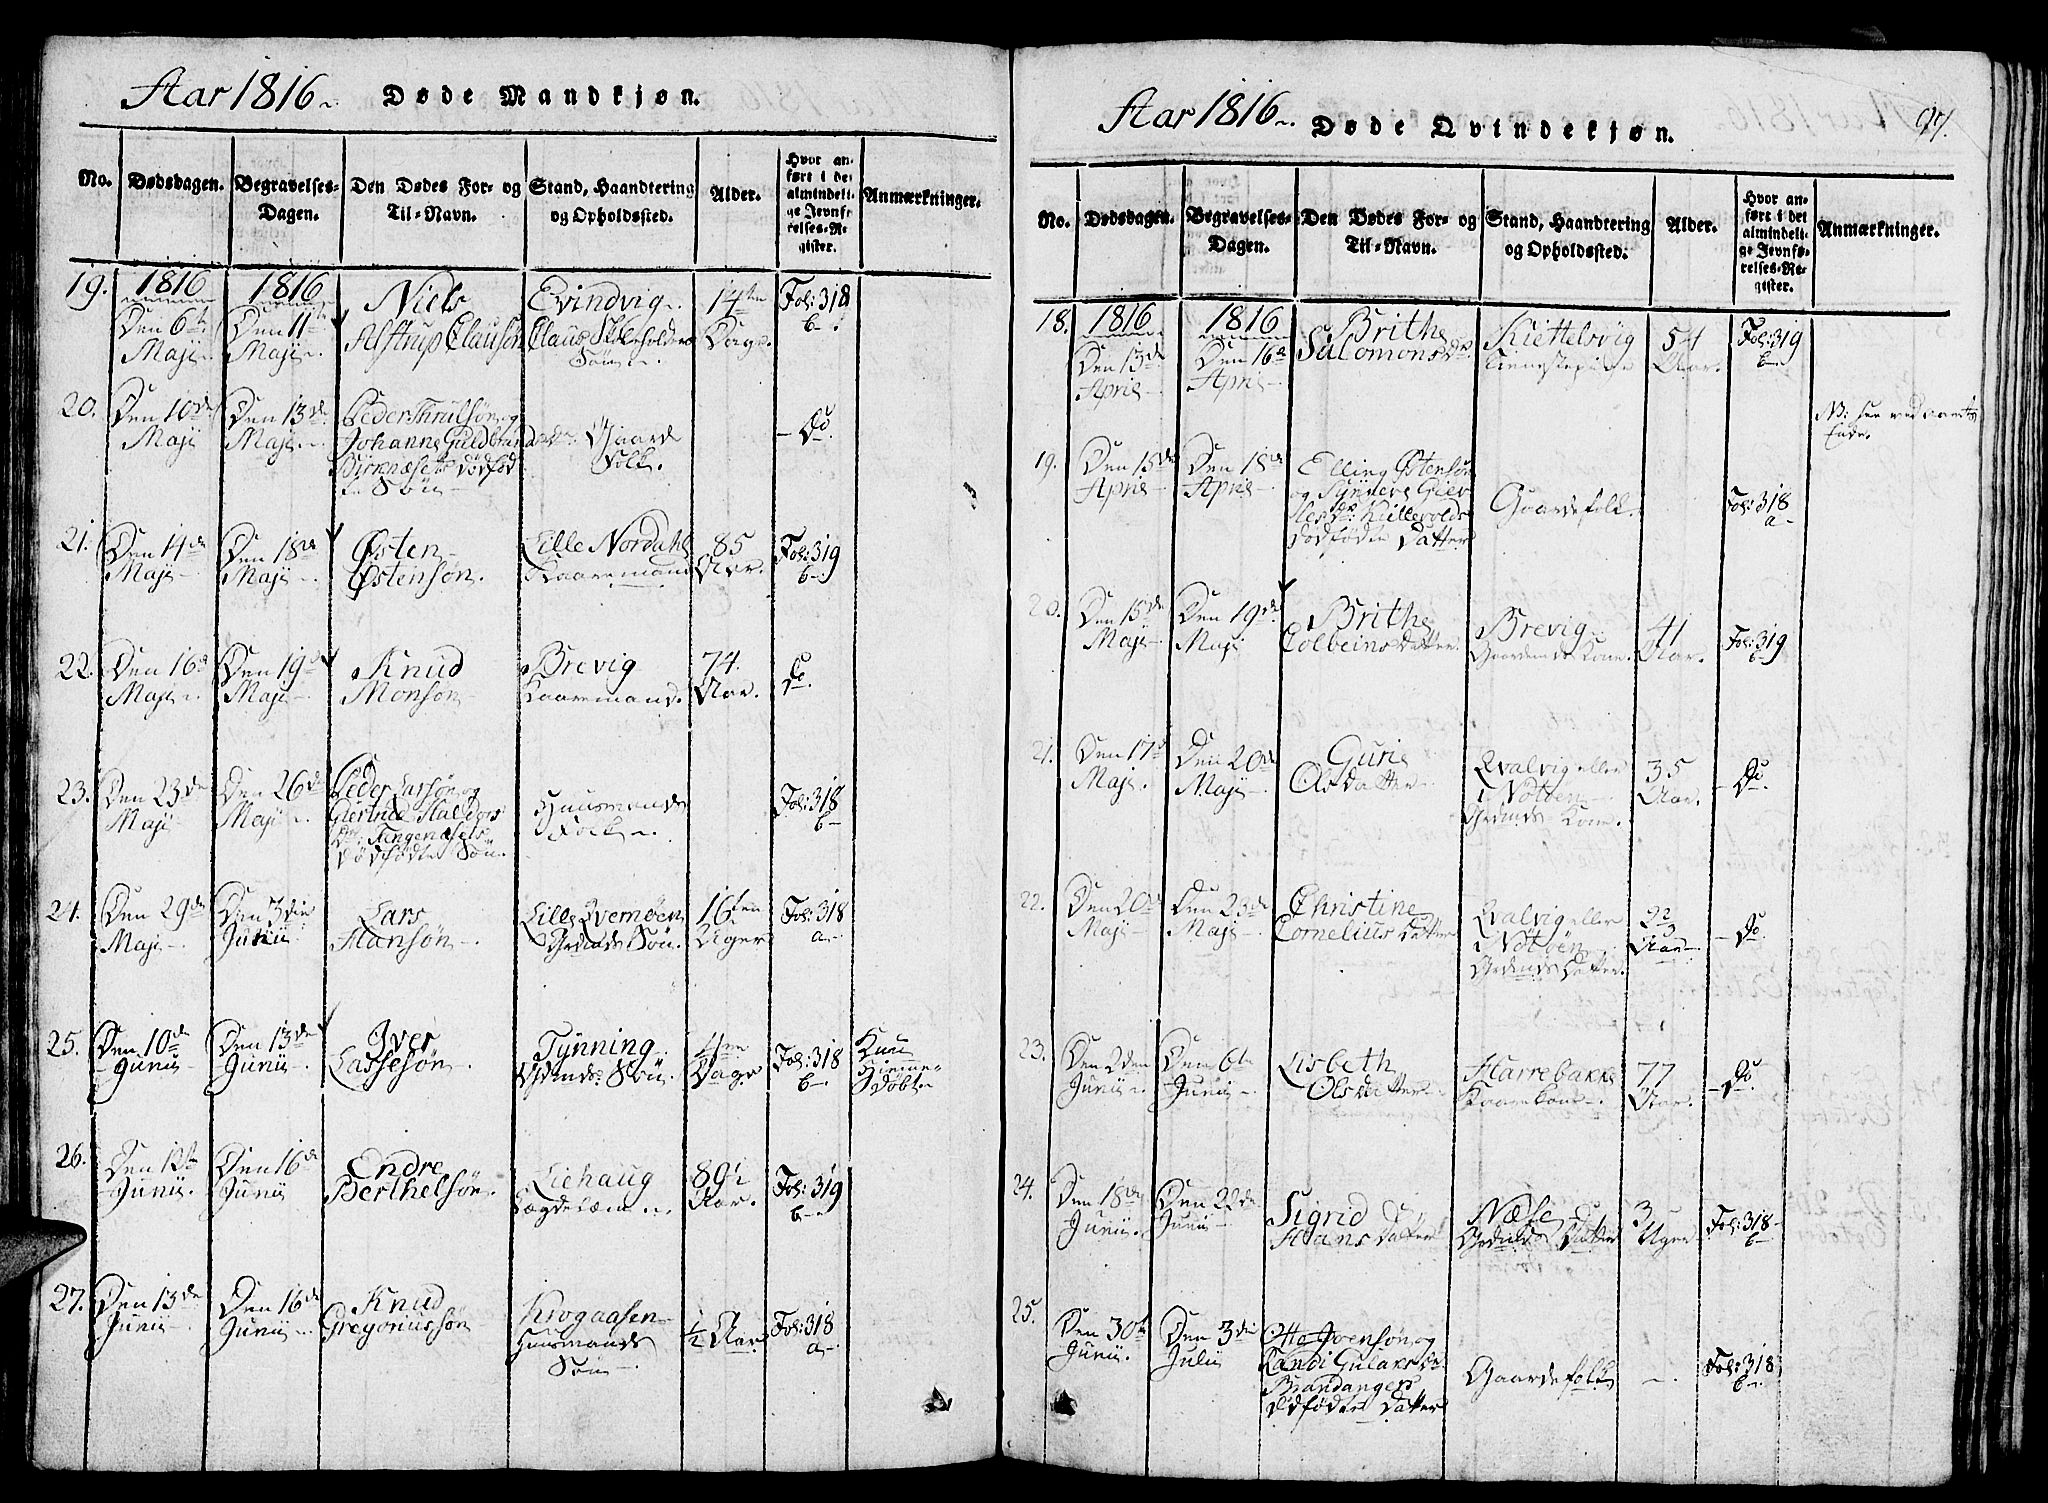 Aar 1816. Døde Mandkjøn.
No. Dødsdagen. Begravelses-Dagen. Den Dødes For- og Til-Navn. Stand, Haandtering og Opholdssted. Alder. Hvor anført i det almindelige Jevnførelses-Register. Anmærkninger.
19. 1816 1816 Niels Evindvig 14ten Fol: 318
Den 6te Den 11te Alstrup Clausøn Claus Skoleholders Dage. b
Maji Maji Søn
20. Den 10de Den 13de Peder Thrulsøn og
Maji Maji Johanne Guldbrandsdr. Gaard Do
Birknæsets dødfød- Folk.
te Søn
21. Den 14de Den 18de Østen Lille Nordahl 85 Fol: 319
Maji Maji Østensøn. Kaaremand Aar. b
22. Den 16de Den 19de Knud Brevig 74. Do
Maji Maji Monsøn Kaaremand. Aar.
23. Den 23de Den 26de Peder Larsøn og Huusmands Fol: 318
Maji Maji Giertrud Haldors Folk b
Dr. Tengenæsets
dødfødte Søn.
24. Den 29de Den 3die Lars Lille Qvemøen 16ten Fol: 318
Maji Junii Hansøn Grdmds Søn. Uger a
25. Den 10de Den 13de Iver Tynning 4re Fol: 318 Kun
Junii Junii Lassesøn Grdmds Søn. Dage b Hiemme-
Døbt
26. Den 12te Den 16de Endre Liehaug 89½ Fol: 319
Junii. Junii Berthelsøn. Lægdelæm Aar. b
27. Den 13de Den 16de Knud Krogaasen ½ Aar Fol: 318
Junii Junii Gregoriussøn Huusmands a
Søn
Aar 1816. Døde Qvindekjøn. 97.
No. Dødsdagen. Begravelses-Dagen. Den Dødes For- og Til-Navn. Stand, Haandtering og Opholdssted. Alder. Hvor anført i det almindelige Jevnførelses-Register. Anmærkninger.
18. 1816 1816 Brithe Kiettelsvig 54 Fol: 319
Den 13de Den 16de Salomonsdr. Tienestepige Aar. b
April April
NB: see ved aarets
Ende.
19. Den 15de Den 18de Elling Østensøn
April April og Synneve Gier- Gaardefolk. Fol: 318
dr: Killevolds a
dødfødte Datter
20. Den 15de Den 19de Brithe Brevig 41 Fol: 319
Maji Maji Colbeinsdatter Gaardmds Kone. Aar. b
21. Den 17de Den 20de Guri Qvalvig eller 35 Do
Maji. Maji Olsdatter Nötöen Aar.
Grdmds Kone.
22. Den 20de Den 23de Christine Qvalvig eller Do
Maji Maji Corneliusdatter Nötöen Aar
Grdmds Datter.
23. Den 2den Den 6te Lisbeth Harrebakke 77 Do
Junii Junii Olsdatter Kaarekone. Aar.
24. Den 18de Den 22de Sigrid Næse 3 Fol: 318
Junii. Junii Hansdatter Grdmds Datter Uger b
25. Den 30te Den 3die Otto Joensøn og
Junii. Julii Randi Gulaks dr. Gaardefolk Fol: 318
Brandangers b
dødfødte Datter